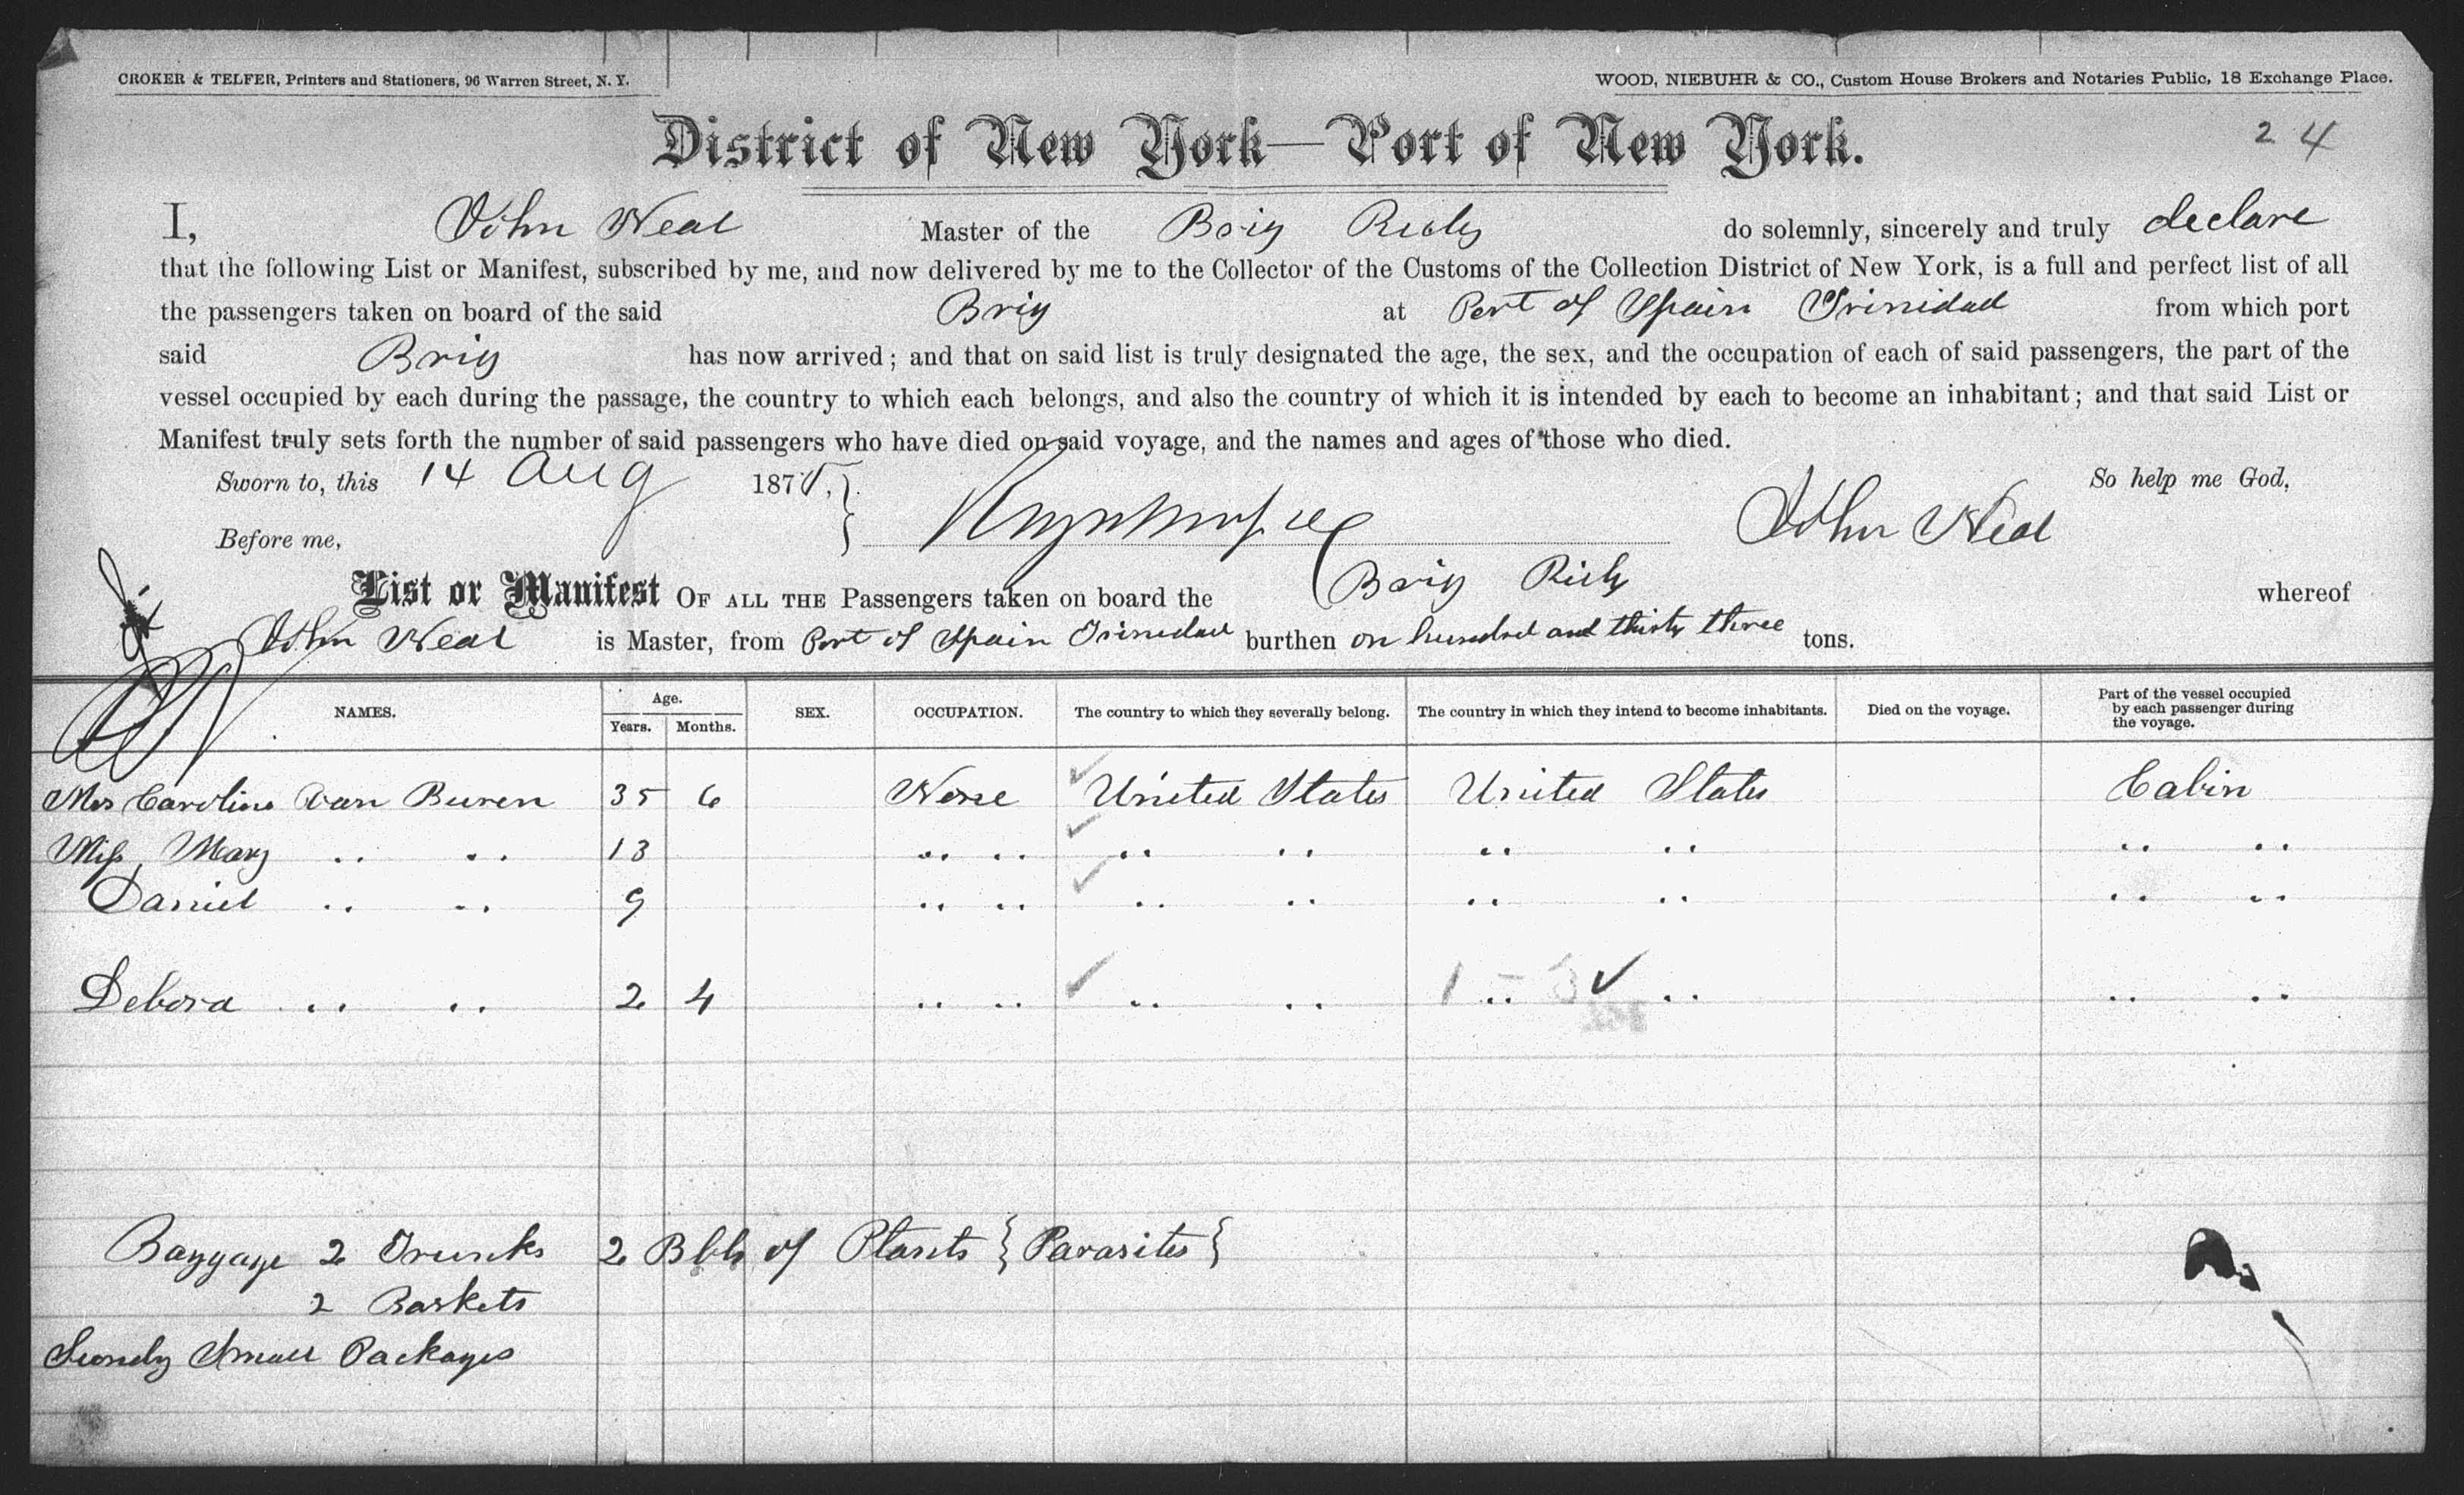 CROKER & TELFER, Printers and Stationers, 96 Warren Street, N. Y.
WOOD, NIEBUHR & CO., Custom House Brokers and Notaries Public, 18 Exchange Place.
District of New York—Port of New York.
24
I, John Neal Master of the Brig do solemnly, sincerely and truly declare
that the following List or Manifest, subscribed by me, and now delivered by me to the Collector of the Customs of the Collection District of New York, is a full and perfect list of all
the passengers taken on board of the said Brig at Port of Spain Trinidad from which port
said Brig has now arrived; and that on said list is truly designated the age, the sex, and the occupation of each of said passengers, the part of the
vessel occupied by each during the passage, the country to which each belongs, and also the country of which it is intended by each to become an inhabitant; and that said List or
Manifest truly sets forth the number of said passengers who have died on said voyage, and the names and ages of those who died.
Sworn to, this 14 Aug 187 So help me God,
Before me, John Neal
List or Manifest OF ALL THE Passengers taken on board the Brig whereof
John Neal is Master, from Port of Spain Trinidad burthen on hundred and thirty three tons.
NAMES. Age. Years. Months. SEX. OCCUPATION. The country to which they severally belong. The country in which they intend to become inhabitants. Died on the voyage. Part of the vessel occupied by each passenger during the voyage.
Mrs Caroline van Buren 35 6 None United States United States Cabin
Miss Mary " " 13 " " " " " " " "
Daniel " " 9 " " " " " " " "
Debora " " 2 4 " " " " " " " "
Baggage 2 Trunks 2 Bbls of Plants { Parasites }
2 Baskets
Sundry Small Packages